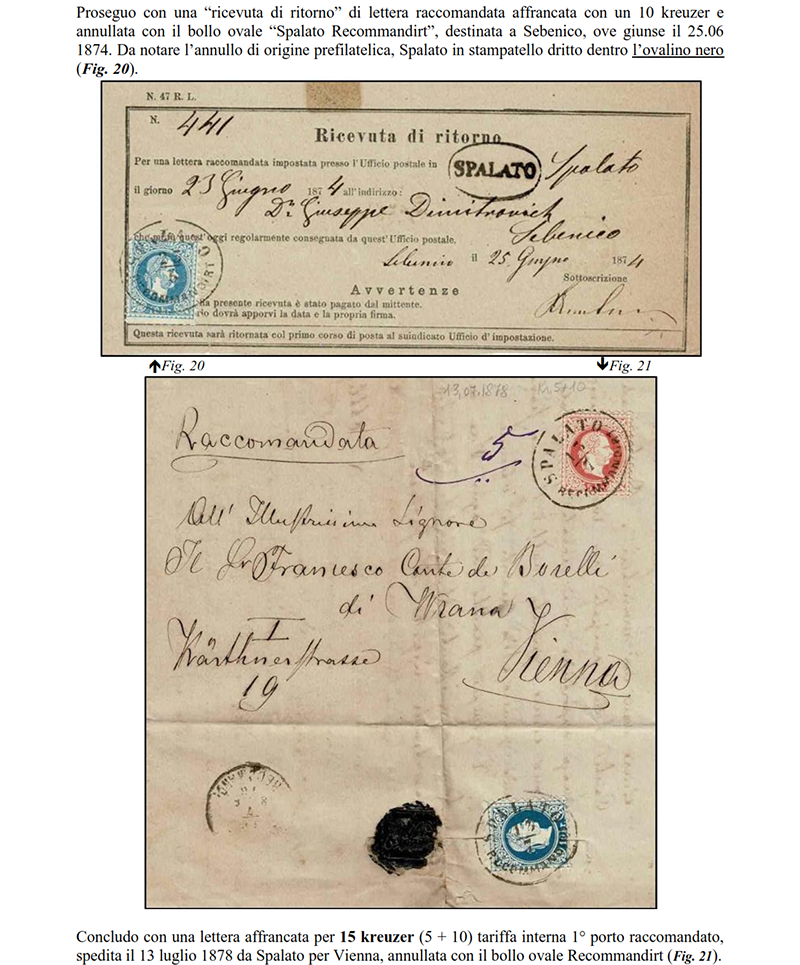 Proseguo con una “ricevuta di ritorno” di lettera raccomandata affrancata con un 10 kreuzer e
annullata con il bollo ovale “Spalato Recommandirt”, destinata a Sebenico, ove giunse il 25.06
1874. Da notare l’annullo di origine prefilatelica, Spalato in stampatello dritto dentro l’ovalino nero
(Fig. 20).
N. 47 R. L.
N. 441
Ricevuta di ritorno
Per una lettera raccomandata impostata presso l'Ufficio postale in SPALATO Spalato
il giorno 23 Giugno 1874 all'indirizzo:
Dr Giuseppe Dimitrovich
Sebenico
quest'oggi regolarmente consegnata da quest'Ufficio postale.
Sebenico il 25 Giugno 1874
Sottoscrizione
Avvertenze
SPALATO
RECOMMANDIRT
presente ricevuta è stato pagato dal mittente.
dovrà apporvi la data e la propria firma.
Questa ricevuta sarà ritornata col primo corso di posta al suindicato Ufficio d'impostazione.
🡹Fig. 20
🡻Fig. 21
13.07.1878 Kr. 5+10
Raccomandata
5
SPALATO
RECOMMANDIRT
All' Illustrissimo Signore
Il Sr Francesco Conte de Borelli
di Wrana
I
Kärthnerstrasse
19
Vienna
SPALATO
13
7
RECOMMANDIRT
Concludo con una lettera affrancata per 15 kreuzer (5 + 10) tariffa interna 1° porto raccomandato,
spedita il 13 luglio 1878 da Spalato per Vienna, annullata con il bollo ovale Recommandirt (Fig. 21).